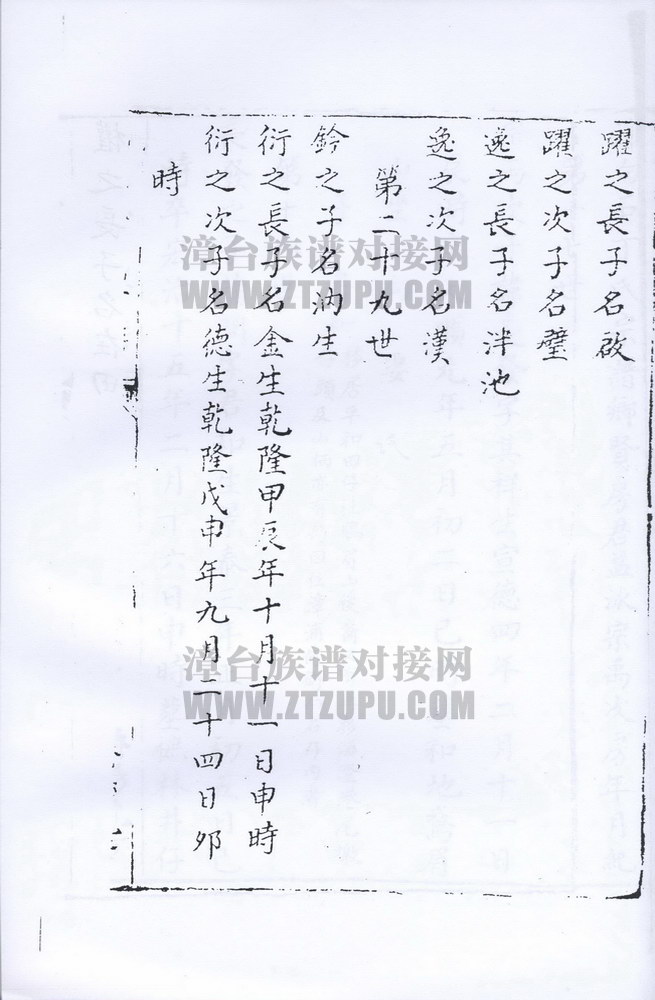 躍之長子名啟
躍之次子名璧
逸之長子名泮池
逸之次子名漢
第二十九世
鈴之子名汭生
衍之長子名金生乾隆甲辰年十月十一日申時
衍之次子名德生乾隆戊申年九月二十四日卯
時
漳台族谱对接网
WWW.ZTZUPU.COM
漳台族谱对接网
WWW.ZTZUPU.COM